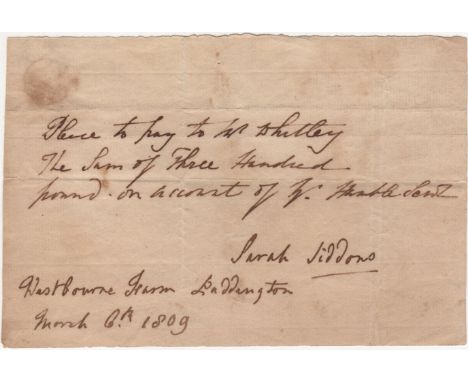 Please to pay to Mr Whitley
The Sum of Three Hundred
pound on account of Yr Humble Servt
Sarah Siddons
Westbourne Farm Paddington
March 6th 1809